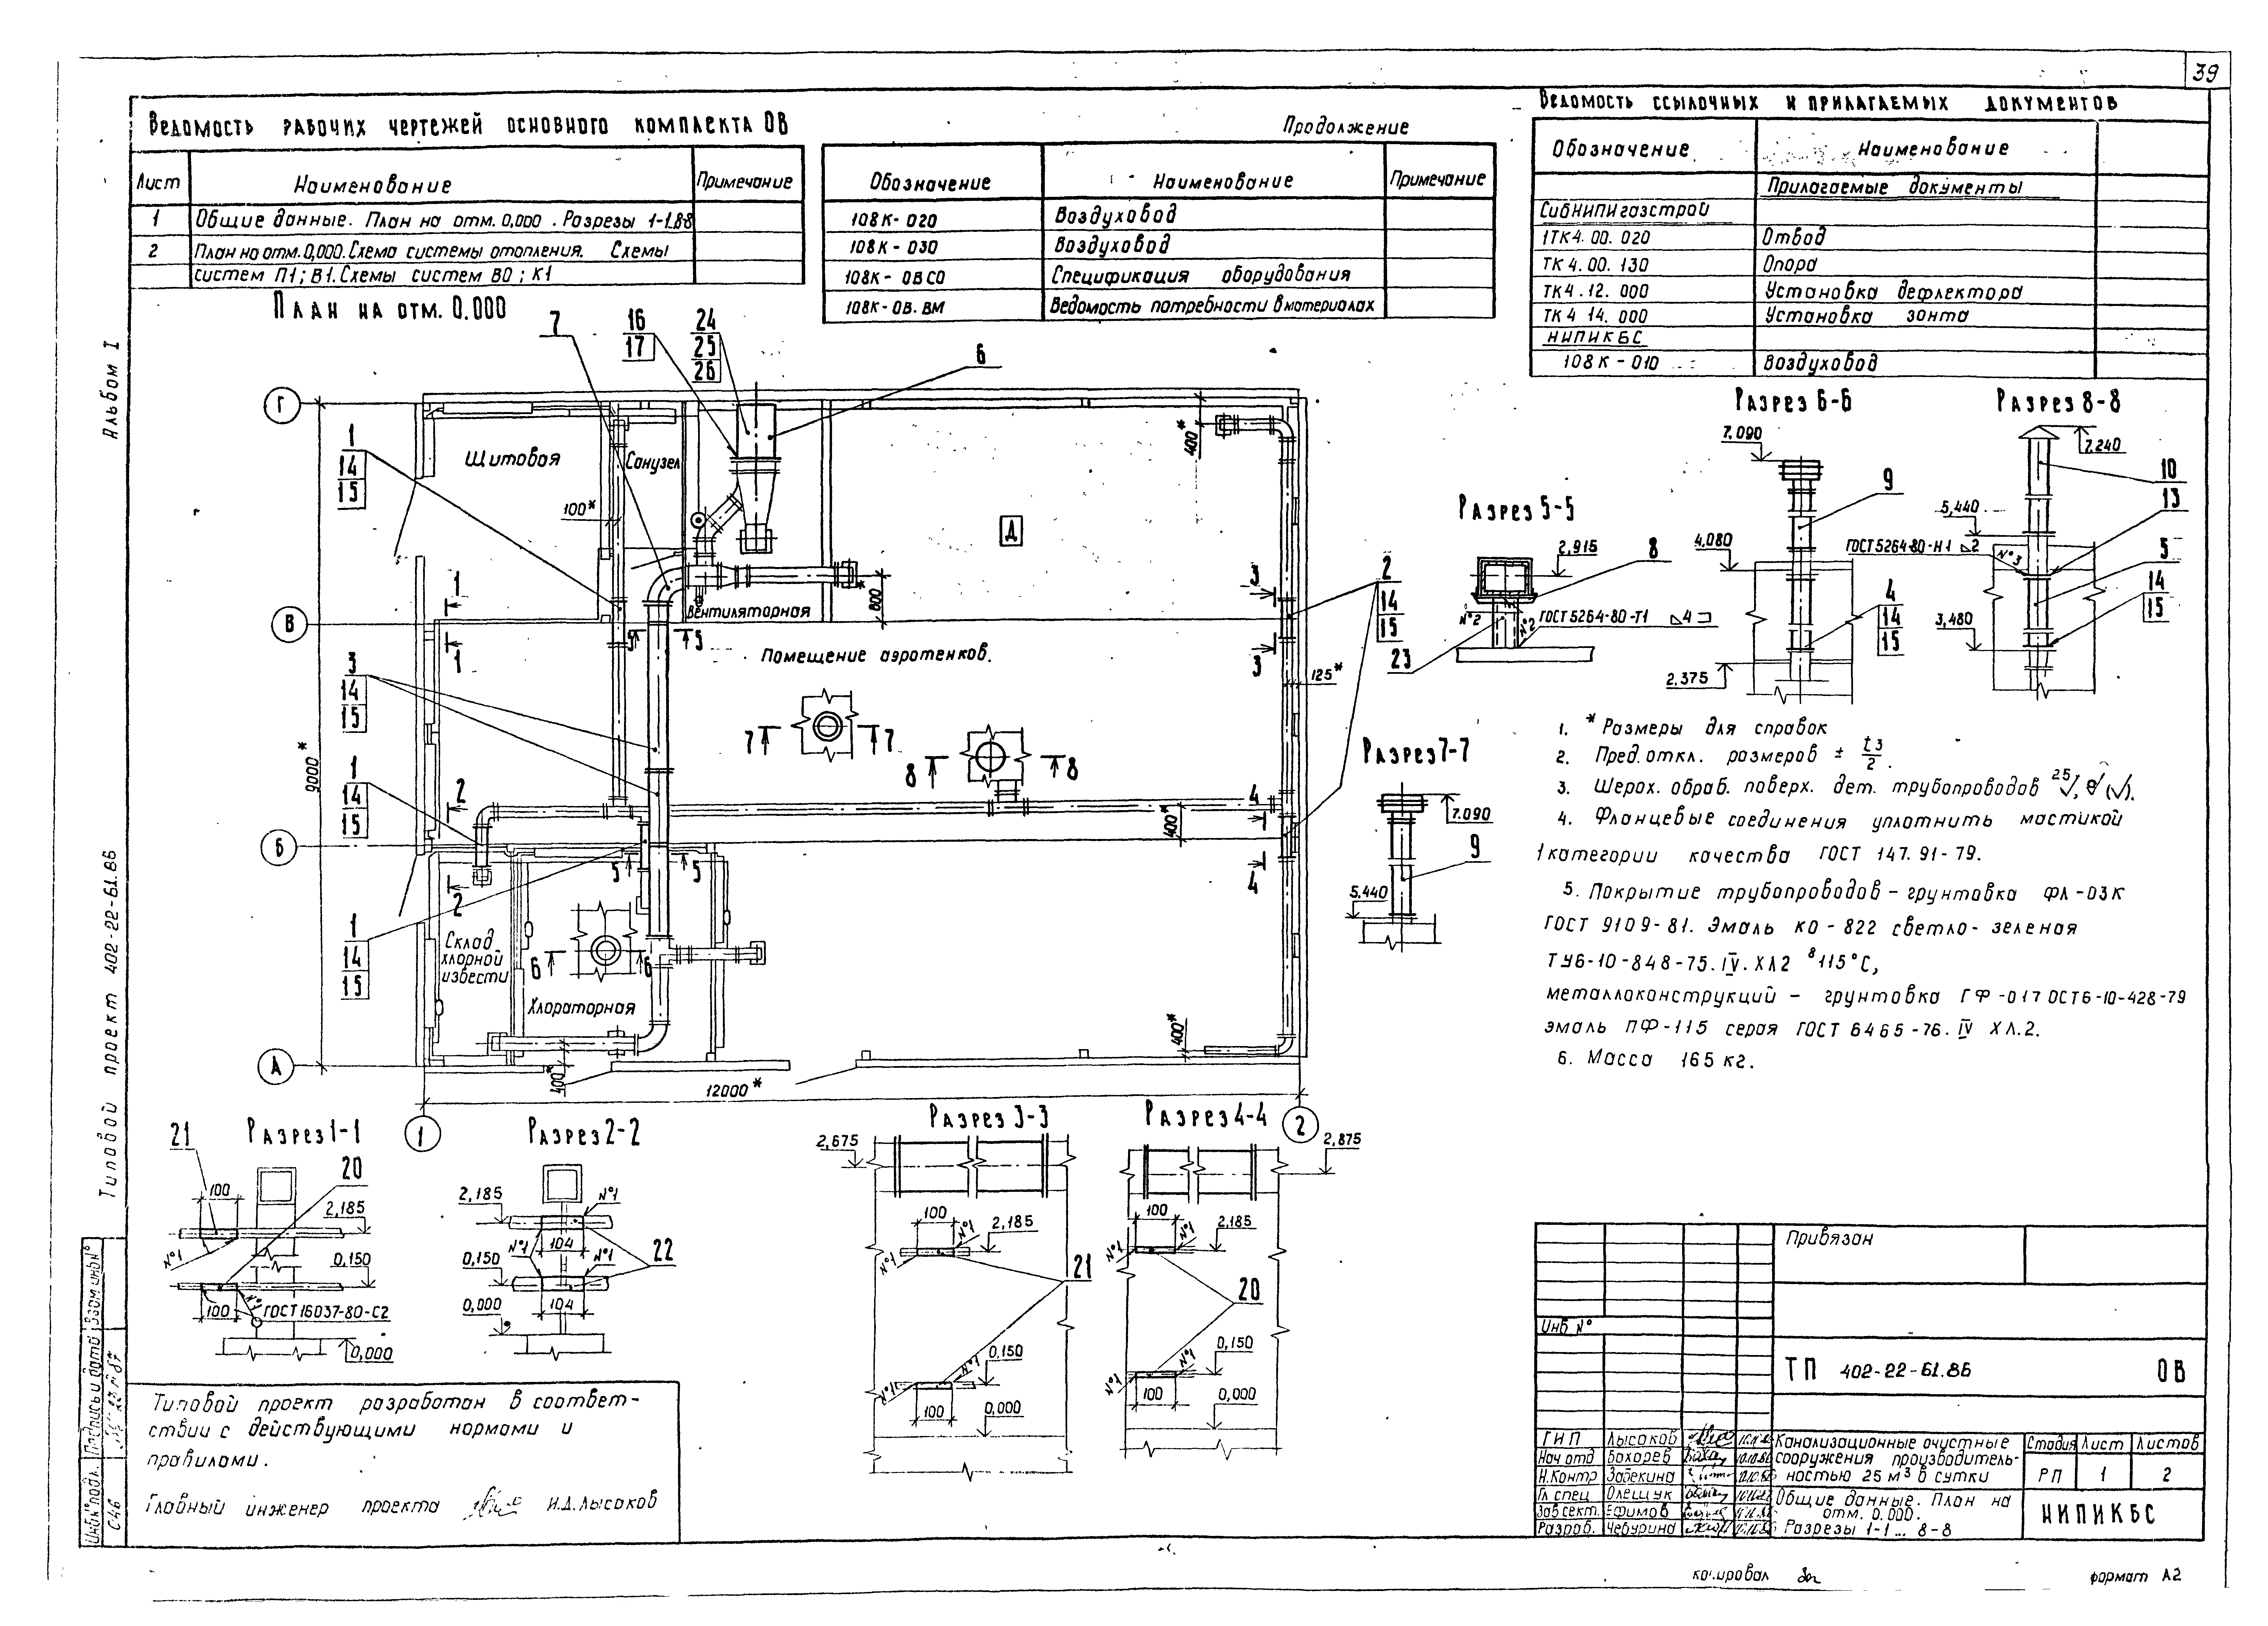 39
Ведомость рабочих чертежей основного комплекта ОВ
Лист Наименование Примечание
1 Общие данные. План на отм. 0,000. Разрезы 1-1..8-8
2 План на отм. 0,000. Схема системы отопления. Схемы
систем П1; В1. Схемы систем ВО; К1
Продолжение
Обозначение Наименование Примечание
108К-020 Воздуховод
108К-030 Воздуховод
108К-ОВСО Спецификация оборудования
108К-ОВ.ВМ Ведомость потребности в материалах
Ведомость ссылочных и прилагаемых документов
Обозначение Наименование
Прилагаемые документы
СибНИПИгазстрой
1ТК4.00.020 Отвод
ТК4.00.130 Опора
ТК4.12.000 Установка дефлектора
ТК4 14.000 Установка зонта
НИПИКБС
108К-010 Воздуховод
План на отм. 0.000
7
16
17
24
25
26
6
Г
В
Б
А
1
2
1
14
15
3
14
15
1
14
15
1
14
15
2
14
15
Щитовая
Санузел
Вентиляторная
Помещение аэротенков.
Склад
хлорной
извести
Хлораторная
Д
100*
400*
800
125*
400*
400*
400*
9000*
12000*
1
1
2
2
3
3
4
4
5 5
5 5
6 6
7 7
8 8
Разрез 5-5
2,915
8
№2
№2
ГОСТ 5264-80-Т1 4
23
Разрез 6-6
7.090
9
4,080
4
14
15
2.375
Разрез 8-8
7.240
10
13
5,440
ГОСТ 5264-80-Н1 2
№3
5
14
15
3,480
Разрез 7-7
7.090
9
5.440
1. *Размеры для справок
2. Пред. откл. размеров ± t3/2.
3. Шерох. обраб. поверх. дет. трубопроводов 25
4. Фланцевые соединения уплотнить мастикой
1 категории качества ГОСТ 147.91-79.
5. Покрытие трубопроводов - грунтовка ФЛ-03К
ГОСТ 9109-81. Эмаль КО-822 светло-зеленая
ТУ6-10-848-75. IV. ХЛ2 8 115°С,
металлоконструкций - грунтовка ГФ-017 ОСТ6-10-428-79
эмаль ПФ-115 серая ГОСТ 6465-76. IV ХЛ.2.
6. Масса 165 кг.
Разрез 1-1
21
20
100
2,185
№1
0,150
100
№1
ГОСТ 16037-80-С2
0,000
Разрез 2-2
2,185
№1
104
№1
№1
0,150
22
104
0,000
Разрез 3-3
2,675
100
№1
2,185
№1
21
0,150
№1
№1
100
0,000
Разрез 4-4
2,875
100
№1
2,185
№1
20
0,150
№1
№1
100
0,000
Типовой проект разработан в соответ-
ствии с действующими нормами и
правилами.
Главный инженер проекта И.Д.Лысаков
Альбом I
Типовой проект 402-22-61.86
Инв.№ подл. Подпись и дата Взам. инв №
С-46
Привязан
Инв №
ТП 402-22-61.86 ОВ
ГИП Лысаков
Нач отд Бахарев
Н.Контр Забекина
Гл спец Олещук
Зав сект. Ефимов
Разраб. Чебурина
Канализационные очистные
сооружения производитель-
ностью 25 м³ в сутки
Стадия Лист Листов
РП 1 2
Общие данные. План на
отм. 0.000.
Разрезы 1-1... 8-8
НИПИКБС
копировал
формат А2